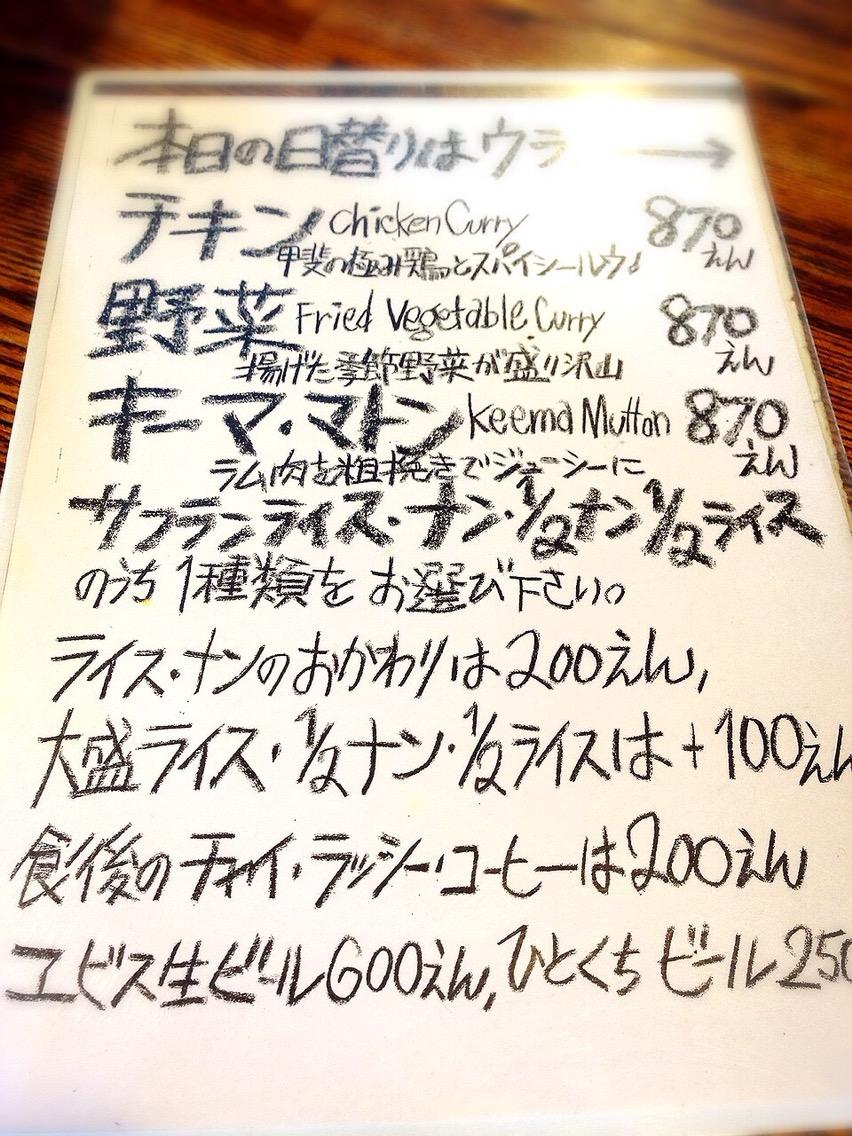 本日の日替りはウラ →
チキン Chicken Curry 870えん
甲斐の極み鶏とスパイシールウ♪
野菜 Fried Vegetable Curry 870えん
揚げた季節野菜が盛り沢山
キーマ・マトン Keema Mutton 870えん
ラム肉を粗挽きでジューシーに
サフランライス・ナン・1/2ナン1/2ライス
のうち1種類をお選び下さい。
ライス・ナンのおかわりは200えん,
大盛ライス・1/2ナン・1/2ライスは+100えん
食後のチャイ・ラッシー・コーヒーは200えん
ヱビス生ビール600えん,ひとくちビール250